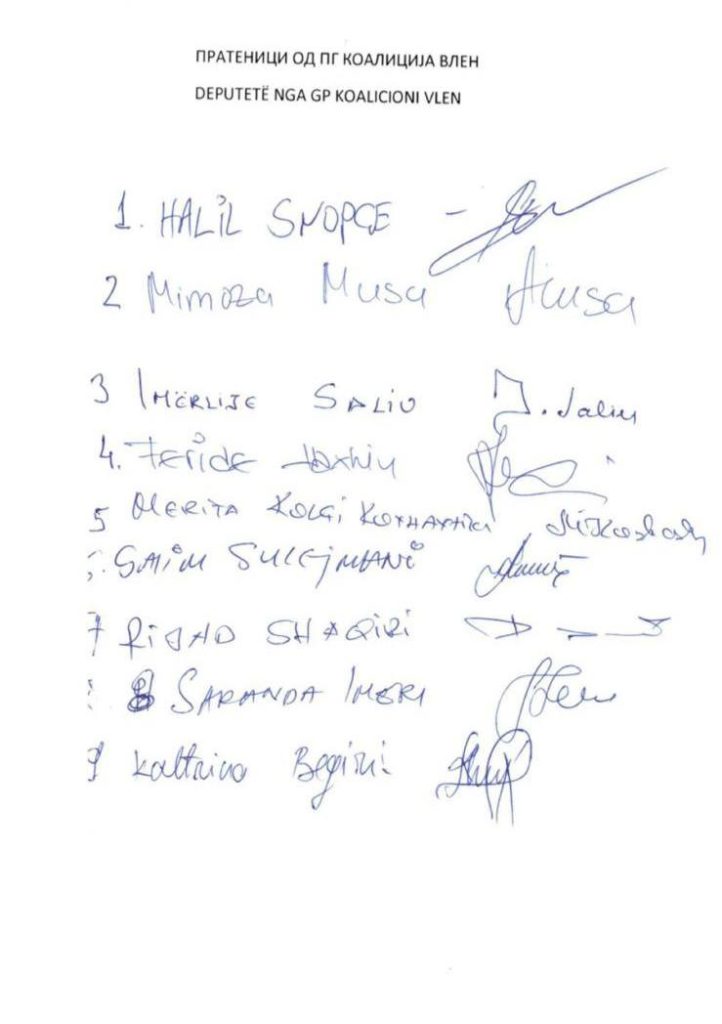 ПРАТЕНИЦИ ОД ПГ КОАЛИЦИЈА ВЛЕН
DEPUTETË NGA GP KOALICIONI VLEN
1. HALIL SNOPÇE -
2 Mimoza Musa Musa
3 IMËRLIJE SALIU I. Saliu
4. FERIDE
5 MERITA KOLÇI
SAIM SULEJMANI
7 RIJAD SHAQIRI
8 SARANDA IMERI
9 Kaltrina